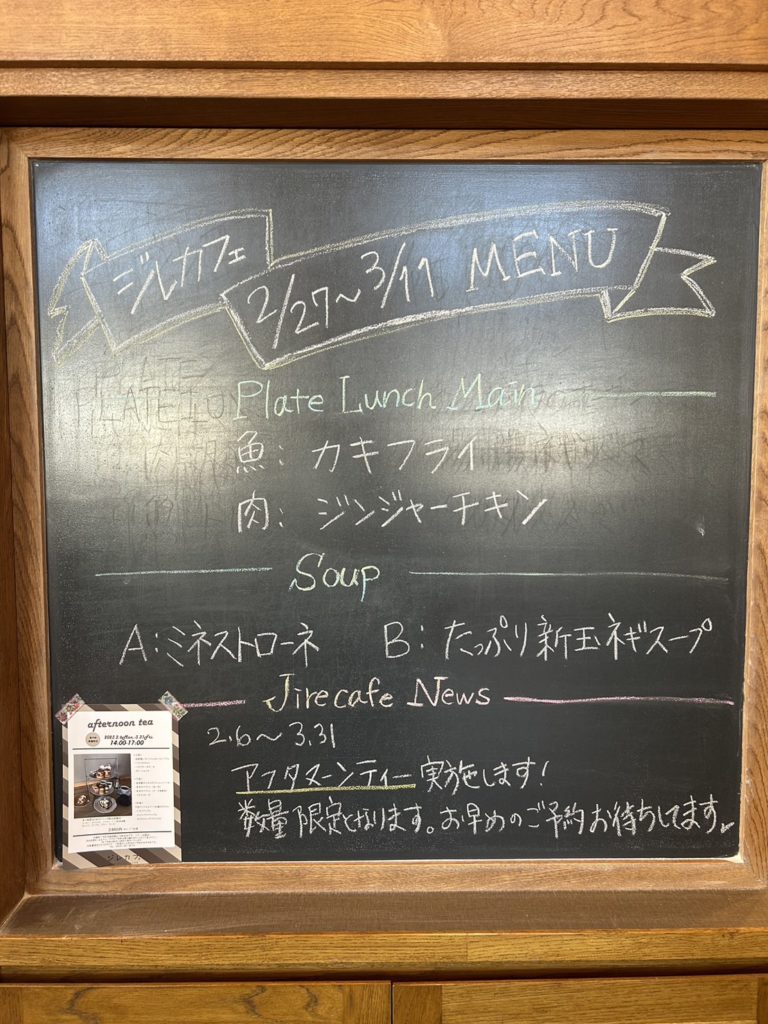 ジレカフェ
2/27～3/11 MENU
Plate Lunch Main
魚: カキフライ
肉: ジンジャーチキン
Soup
A:ミネストローネ B: たっぷり新玉ネギスープ
Jirecafe News
2.6～3.31
アフタヌーンティー実施します!
数量限定となります。お早めのご予約お待ちしてます。
afternoon tea
14:00-17:00
ジレカフェ